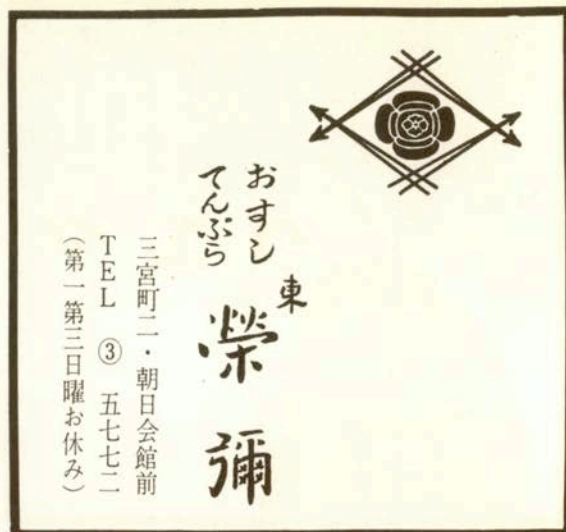 おすし
てんぷら
東
榮彌
三宮町二・朝日会館前
TEL ③ 五七七二
（第一第三日曜お休み）